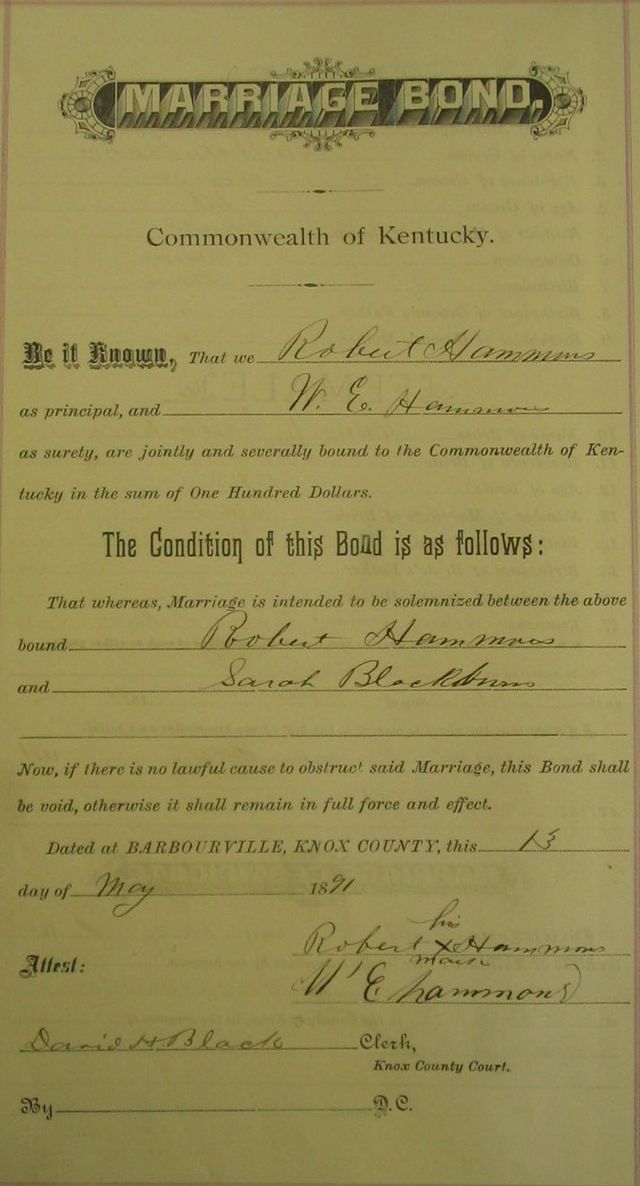 MARRIAGE BOND.
Commonwealth of Kentucky.
Be it Known, That we Robert Hammons
as principal, and W. E. Hammons
as surety, are jointly and severally bound to the Commonwealth of Ken-
tucky in the sum of One Hundred Dollars.
The Condition of this Bond is as follows:
That whereas, Marriage is intended to be solemnized between the above
bound Robert Hammons
and Sarah Blackburn
Now, if there is no lawful cause to obstruct said Marriage, this Bond shall
be void, otherwise it shall remain in full force and effect.
Dated at BARBOURVILLE, KNOX COUNTY, this 13
day of May 1891
his
Robert X Hammons
mark
Attest:
W E hammons
David H Black Clerk,
Knox County Court.
By D.C.